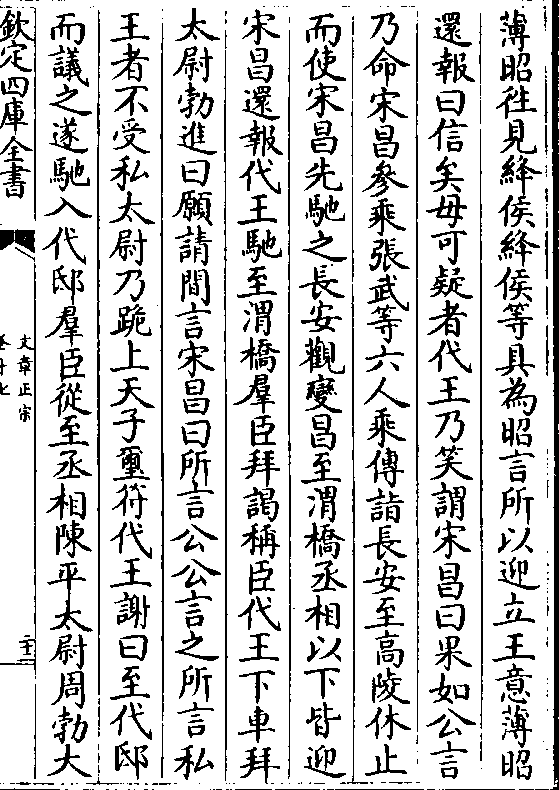 薄昭徃見絳侯絳侯等具為昭言所以迎立王意薄昭
還報曰信矣毋可疑者代王乃笑謂宋昌曰果如公言
乃命宋昌參乘張武等六人乘傳詣長安至高陵休止
而使宋昌先馳之長安觀變昌至渭橋丞相以下皆迎
宋昌還報代王馳至渭橋羣臣拜謁稱臣代王下車拜
太尉勃進曰願請間言宋昌曰所言公公言之所言私
王者不受私太尉乃跪上天子璽符代王謝曰至代邸
而議之遂馳入代邸羣臣從至丞相陳平太尉周勃大
欽定四庫全書
文章正宗